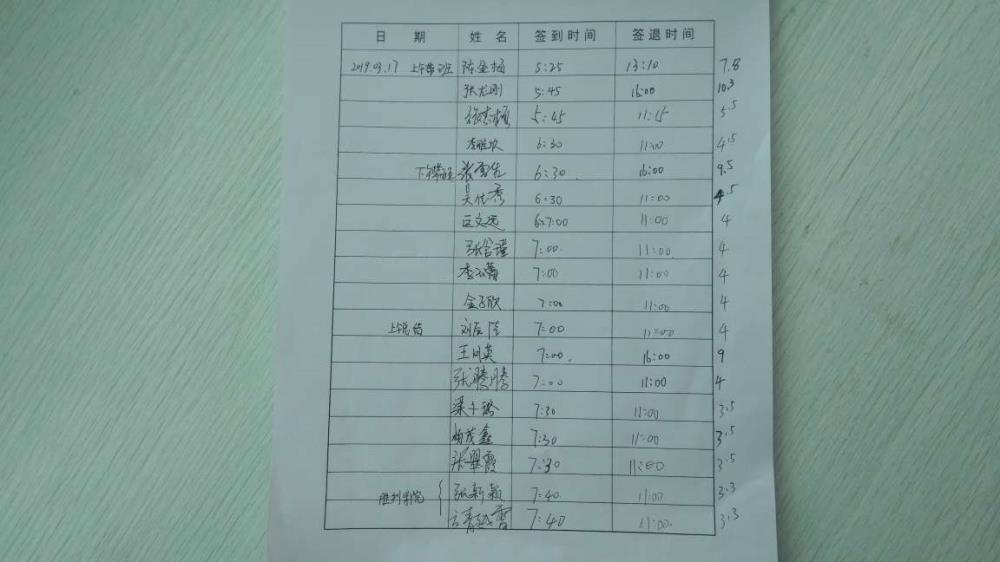 日 期 姓 名 签到时间 签退时间
2019.03.17 上午带班 陈金杨 5:25 13:10 7.8
张龙刚 5:45 16:00 10.3
5:45 11:15 5.5
李雅欣 6:30 11:00 4.5
下午带班 张雪佳 6:30 16:00 9.5
吴佳秀 6:30 11:00 4.5
7:00 11:00 4
7:00 11:00 4
7:00 11:00 4
金子欣 7:00 11:00 4
上午总结 7:00 11:00 4
王明英 7:00 16:00 9
张腾腾 7:00 11:00 4
7:30 11:00 3.5
杨茂鑫 7:30 11:00 3.5
张翠霞 7:30 11:00 3.5
胜利学院 张新颖 7:40 11:00 3.3
7:40 11:00 3.3